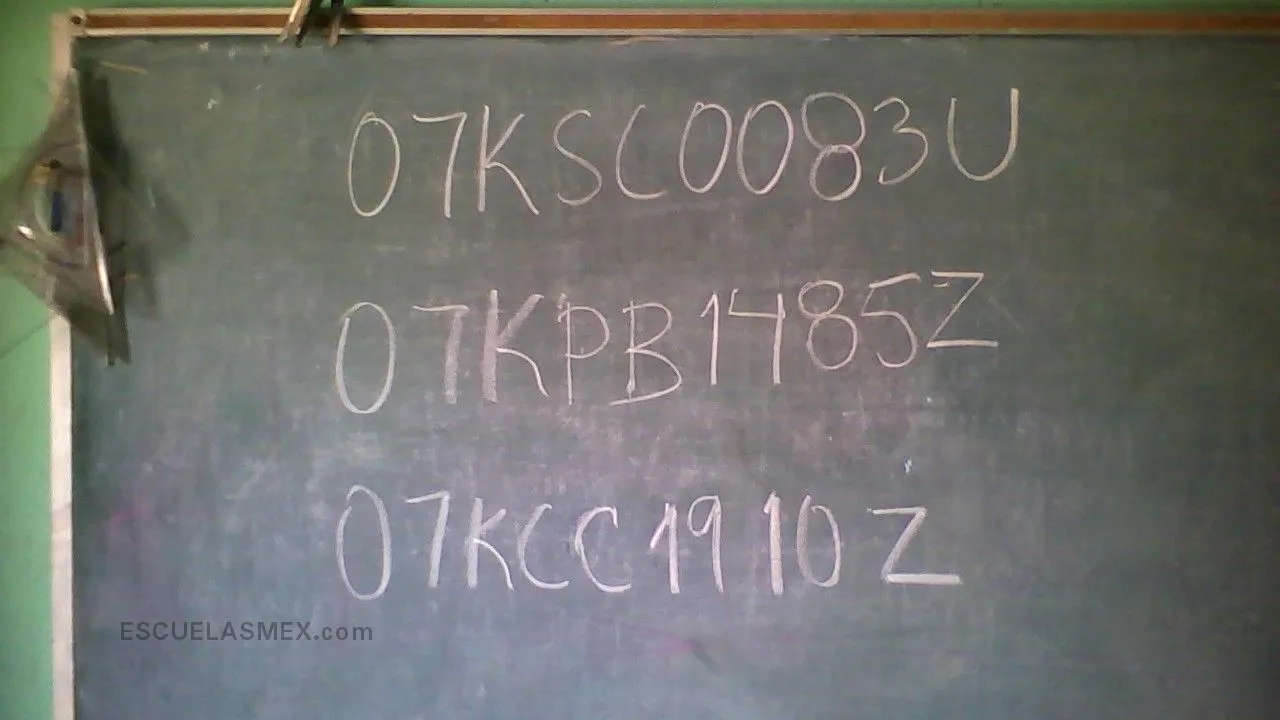 07KSC0083U
07KPB1485Z
07KCC1910Z
ESCUELASMEX.com